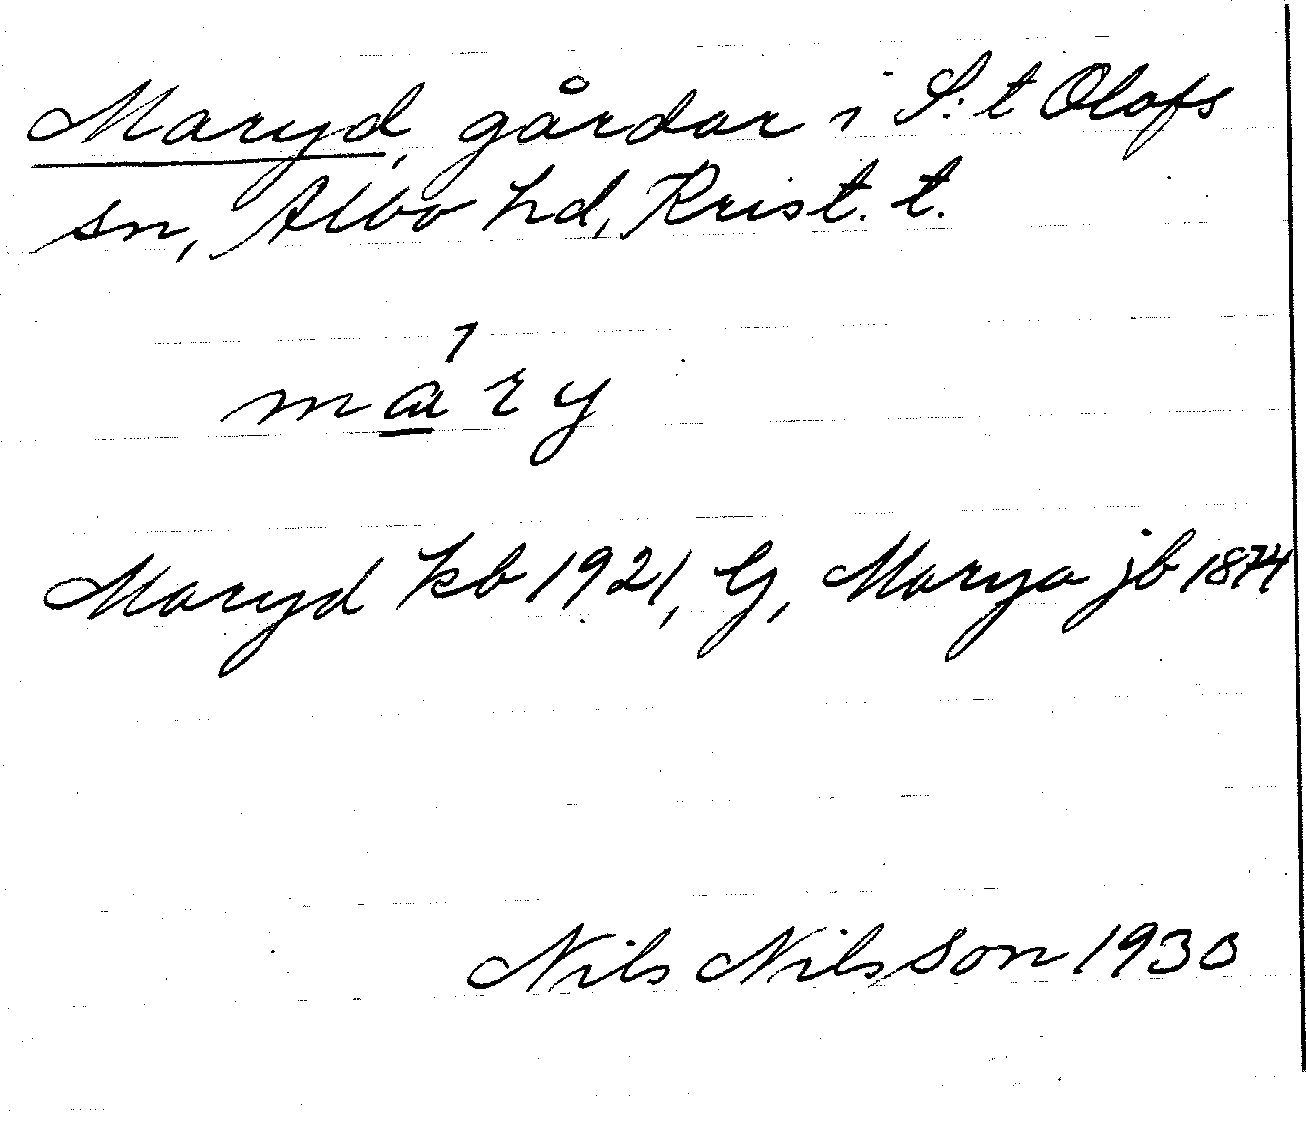 Maryd, gårdar i S:t Olofs
sn, Albo hd, Krist. t.
máry
Maryd kb 1921, G, Marya jb 1874
Nils Nilsson 1930